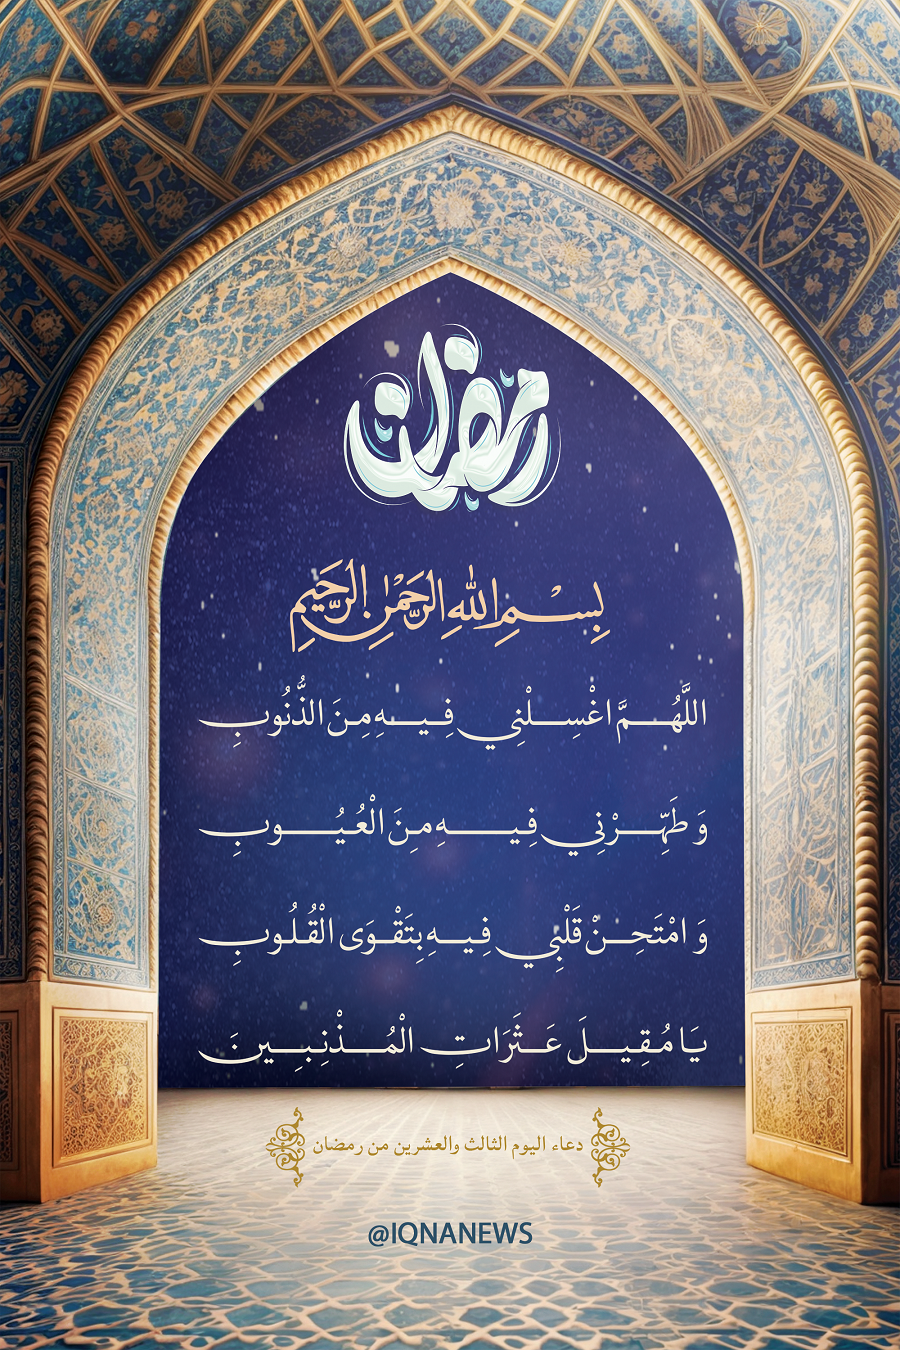 رمضان
بِسْمِ اللهِ الرَّحْمٰنِ الرَّحِيمِ
اللَّهُمَّ اغْسِلْنِي فِيهِ مِنَ الذُّنُوبِ
وَ طَهِّرْنِي فِيهِ مِنَ الْعُيُوبِ
وَ امْتَحِنْ قَلْبِي فِيهِ بِتَقْوَى الْقُلُوبِ
يَا مُقِيلَ عَثَرَاتِ الْمُذْنِبِينَ
دعاء اليوم الثالث والعشرين من رمضان
@IQNANEWS